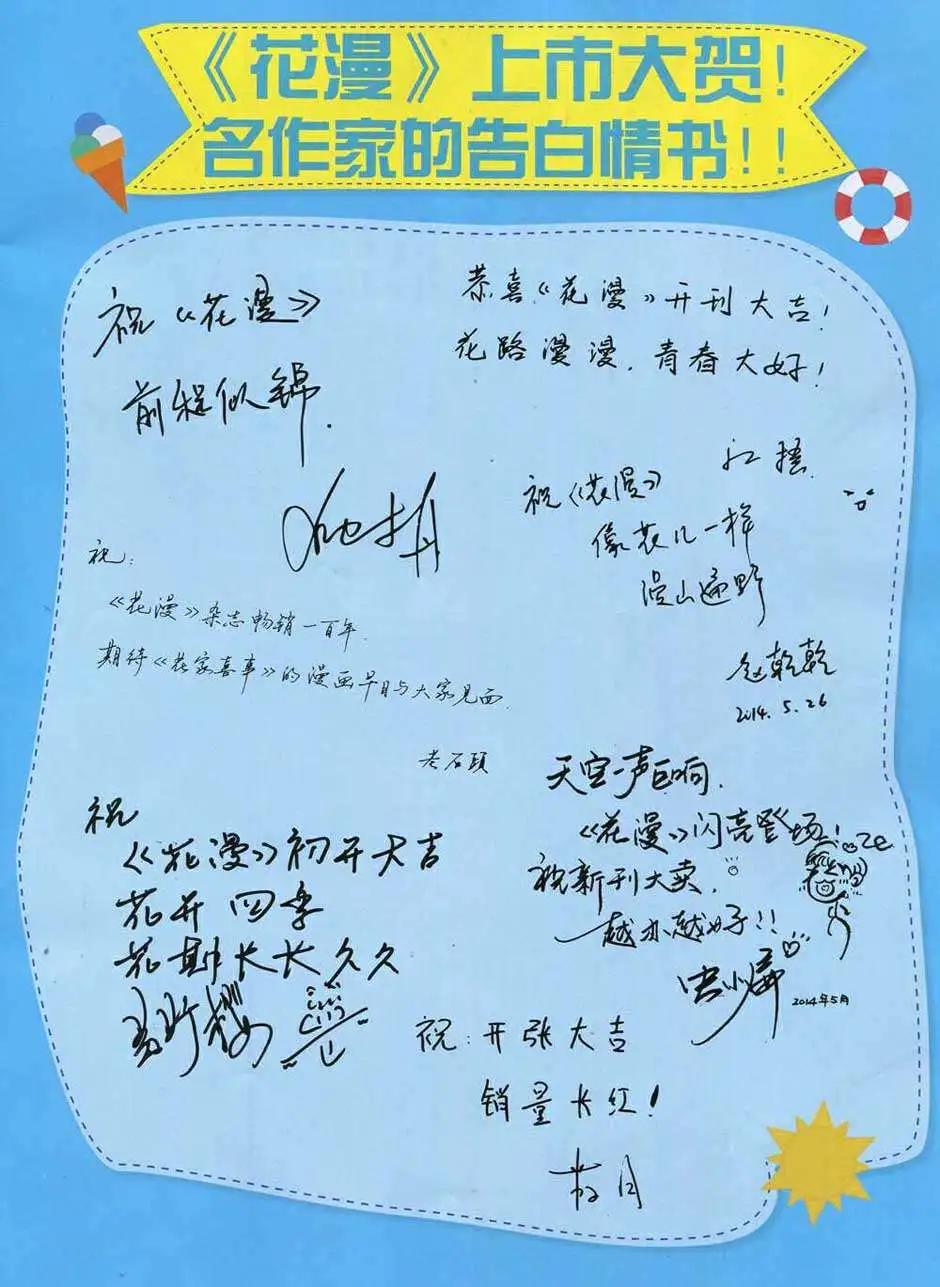 《花漫》上市大贺！
名作家的告白情书！！
祝《花漫》
前程似锦.
恭喜《花漫》开刊大吉！
花路漫漫，青春大好！
祝《花漫》
像花儿一样
漫山遍野
赵乾乾
2014.5.26
祝：
《花漫》杂志畅销一百年.
期待《花家喜事》的漫画早日与大家见面.
老石头
天空一声巨响.
《花漫》闪亮登场！
祝新刊大卖.
越办越好!!
2014年5月
祝
《花漫》初开大吉
花开四季
花期长长久久
祝：开张大吉
销量长红！